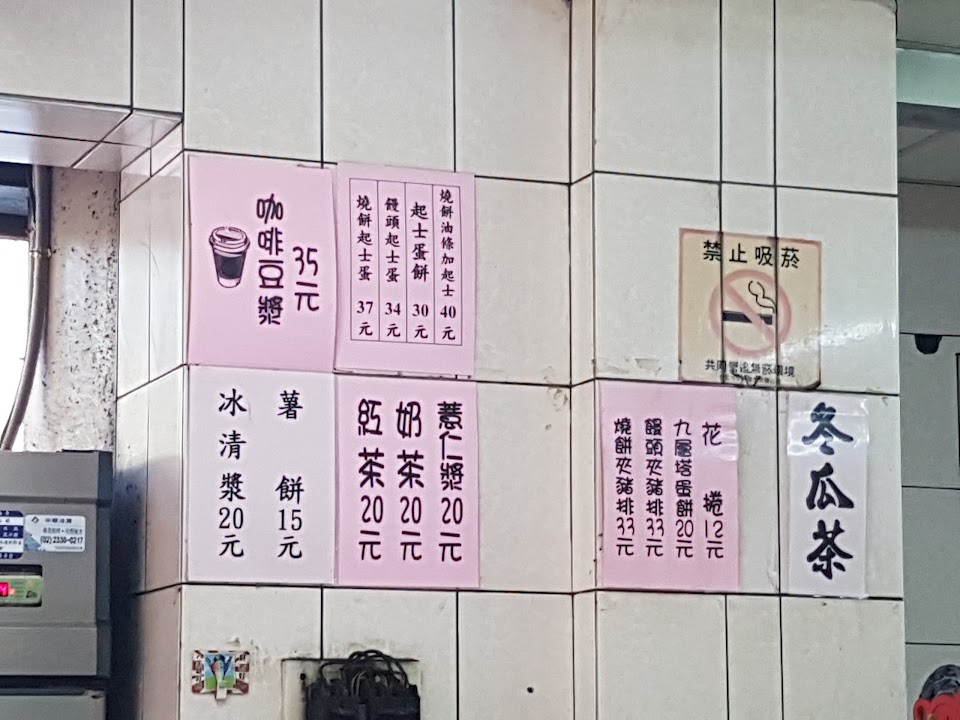 咖啡豆漿
35元
燒餅油條加起士 40元
起士蛋餅 30元
饅頭起士蛋 34元
燒餅起士蛋 37元
禁止吸菸
薯餅15元
冰清漿20元
薏仁漿20元
奶茶20元
紅茶20元
花捲12元
九層塔蛋餅20元
饅頭夾豬排33元
燒餅夾豬排33元
冬瓜茶
(02)2338-0217